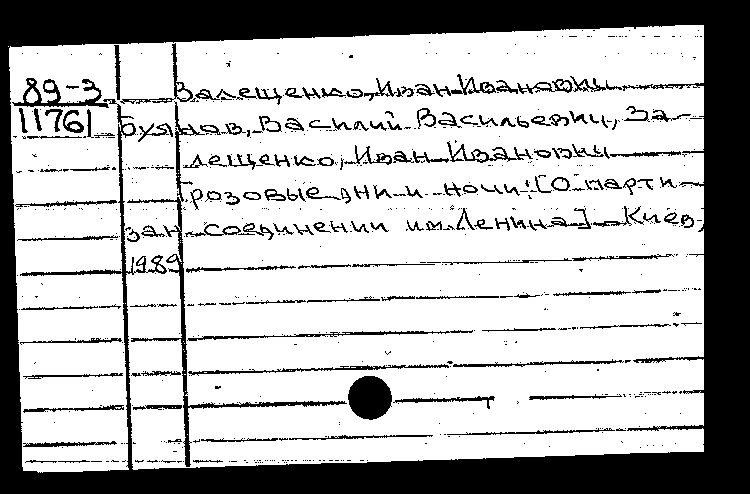 89-3 Залещенко, Иван Иванович
11761 Буянов, Василий Васильевич, За-
лещенко, Иван Иванович
Грозовые дни и ночи: [О парти-
зан. соединении им. Ленина]. - Киев,
1989